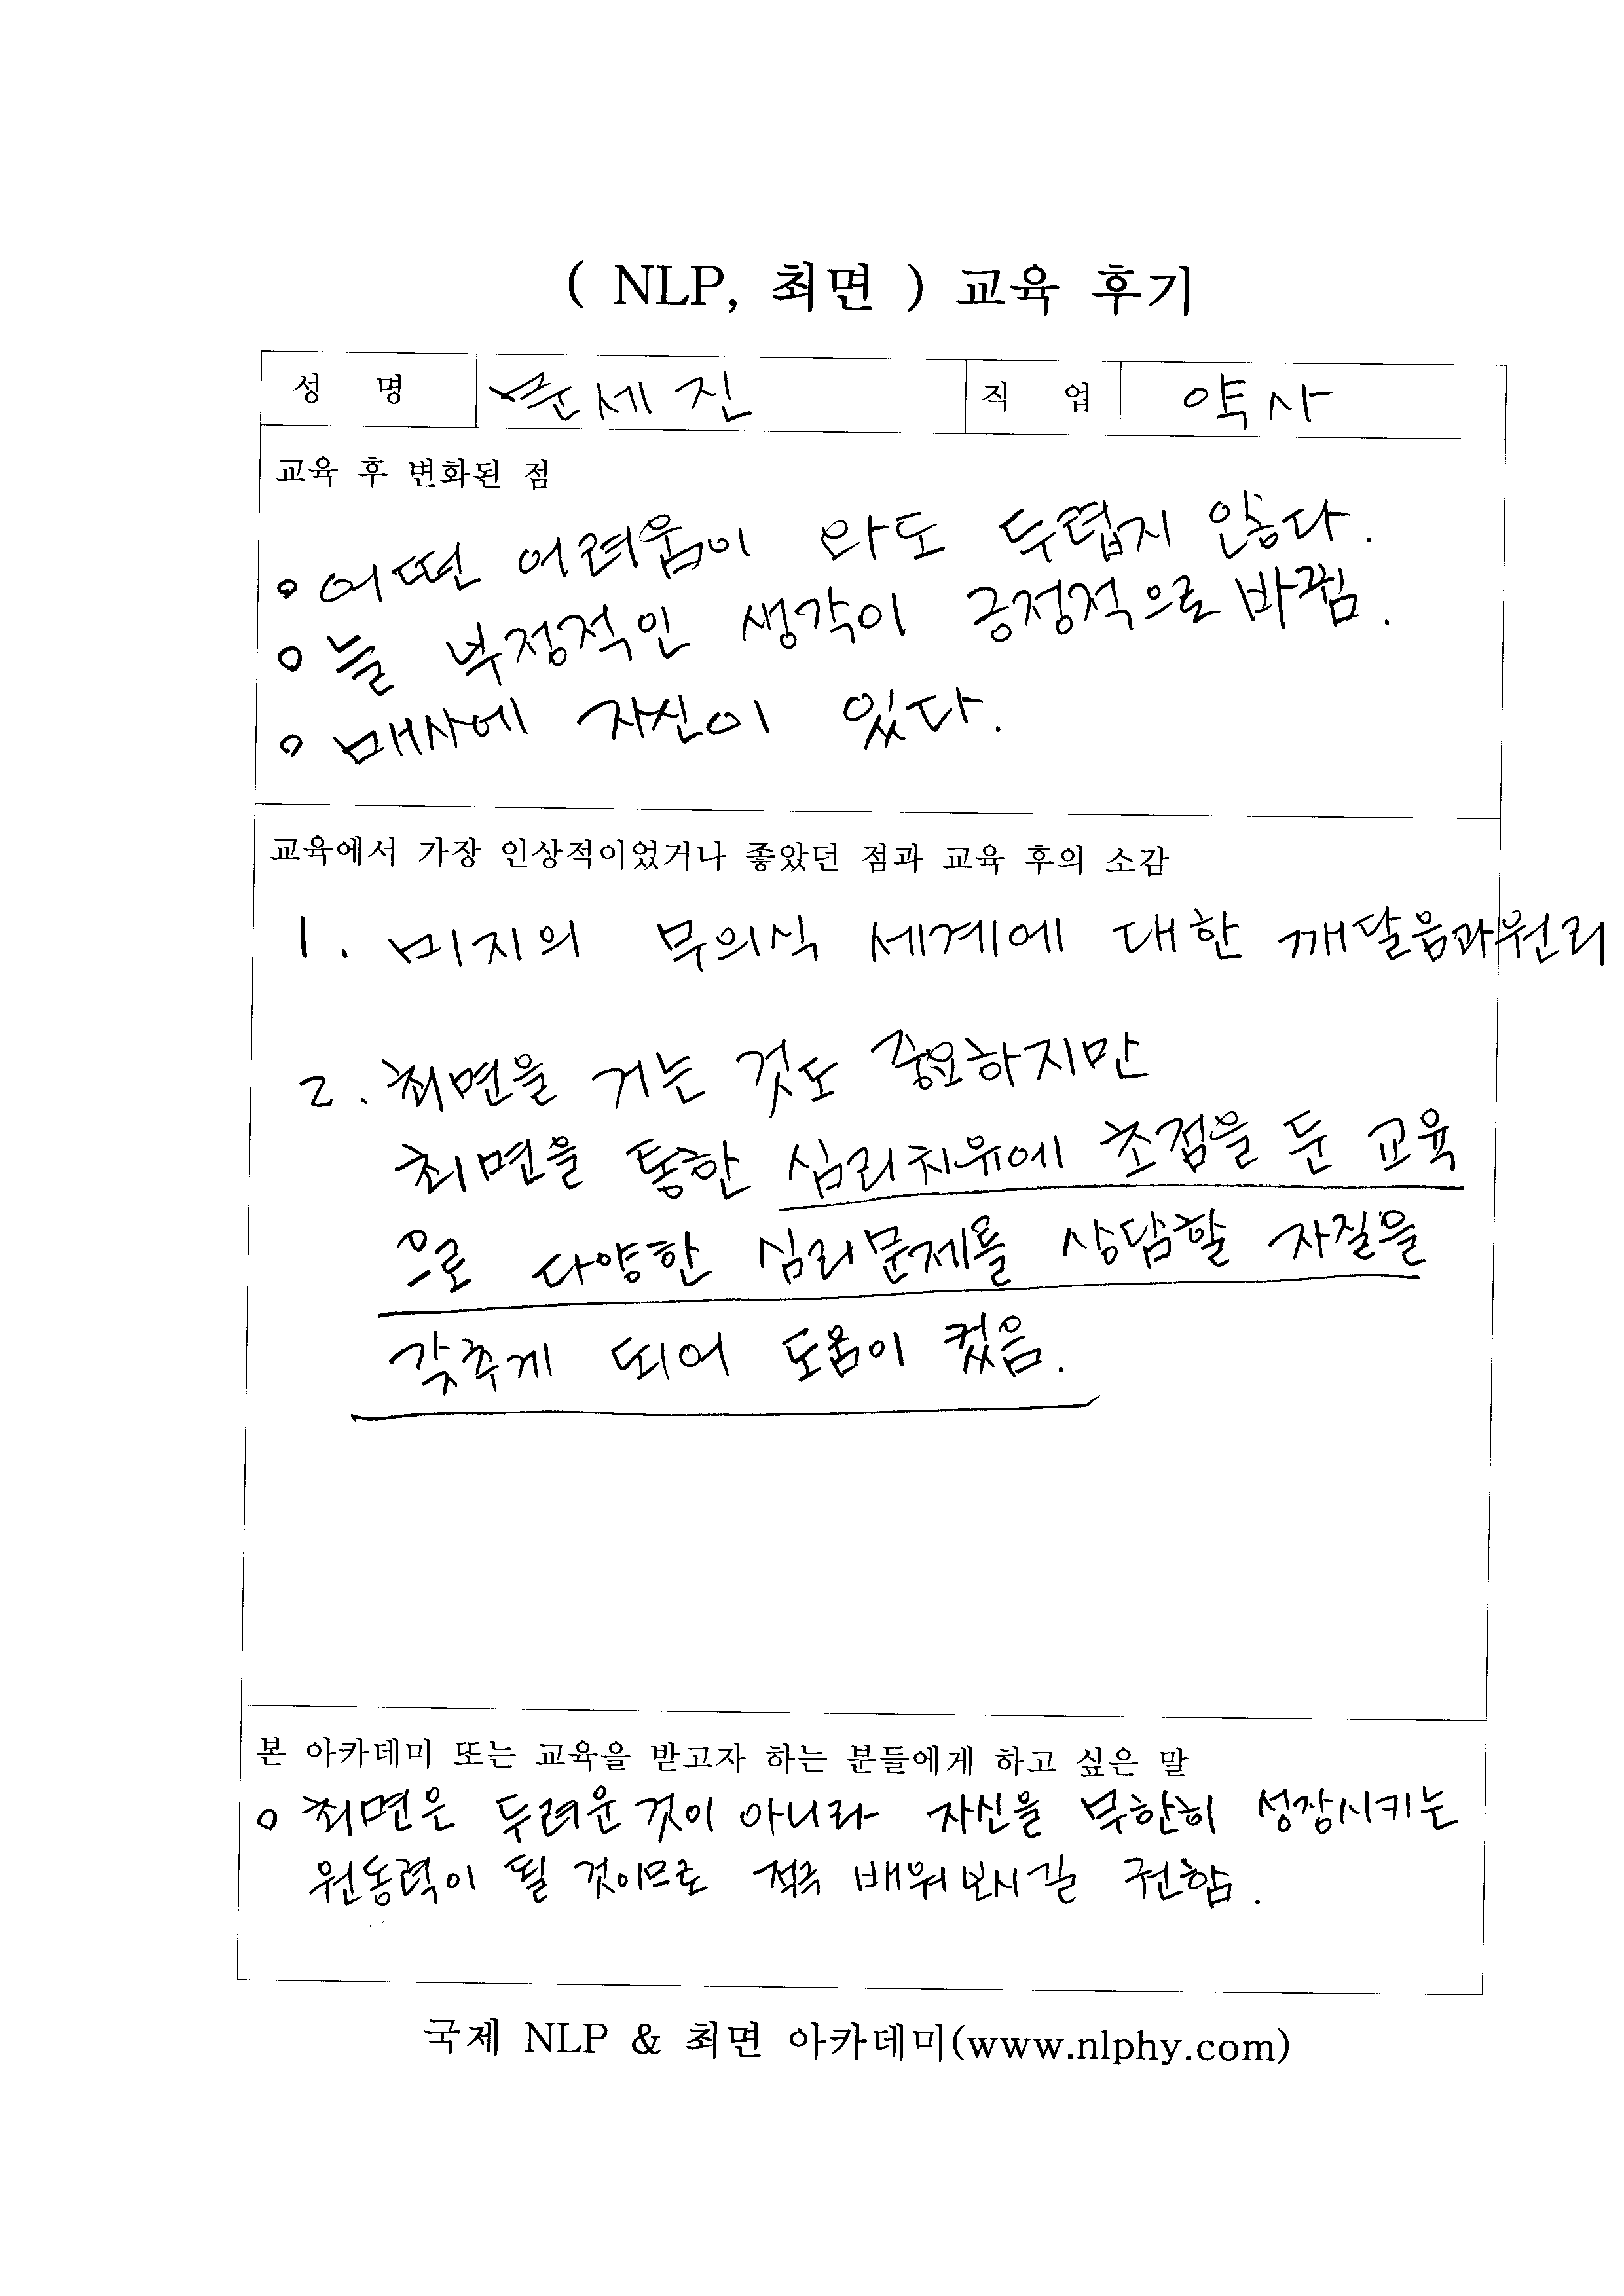 ( NLP, 최면 ) 교육 후기
성 명 문세진 직 업 약사
교육 후 변화된 점
o 어떤 어려움이 와도 두렵지 않다.
o 늘 부정적인 생각이 긍정적으로 바뀜.
o 매사에 자신이 있다.
교육에서 가장 인상적이었거나 좋았던 점과 교육 후의 소감
1. 미지의 무의식 세계에 대한 깨달음과 원리
2. 최면을 거는 것도 중요하지만
최면을 통한 심리치유에 초점을 둔 교육
으로 다양한 심리문제를 상담할 자질을
갖추게 되어 도움이 컸음.
본 아카데미 또는 교육을 받고자 하는 분들에게 하고 싶은 말
o 최면은 두려운 것이 아니라 자신을 무한히 성장시키는
원동력이 될 것이므로 적극 배워보시길 권함.
국제 NLP & 최면 아카데미(www.nlphy.com)